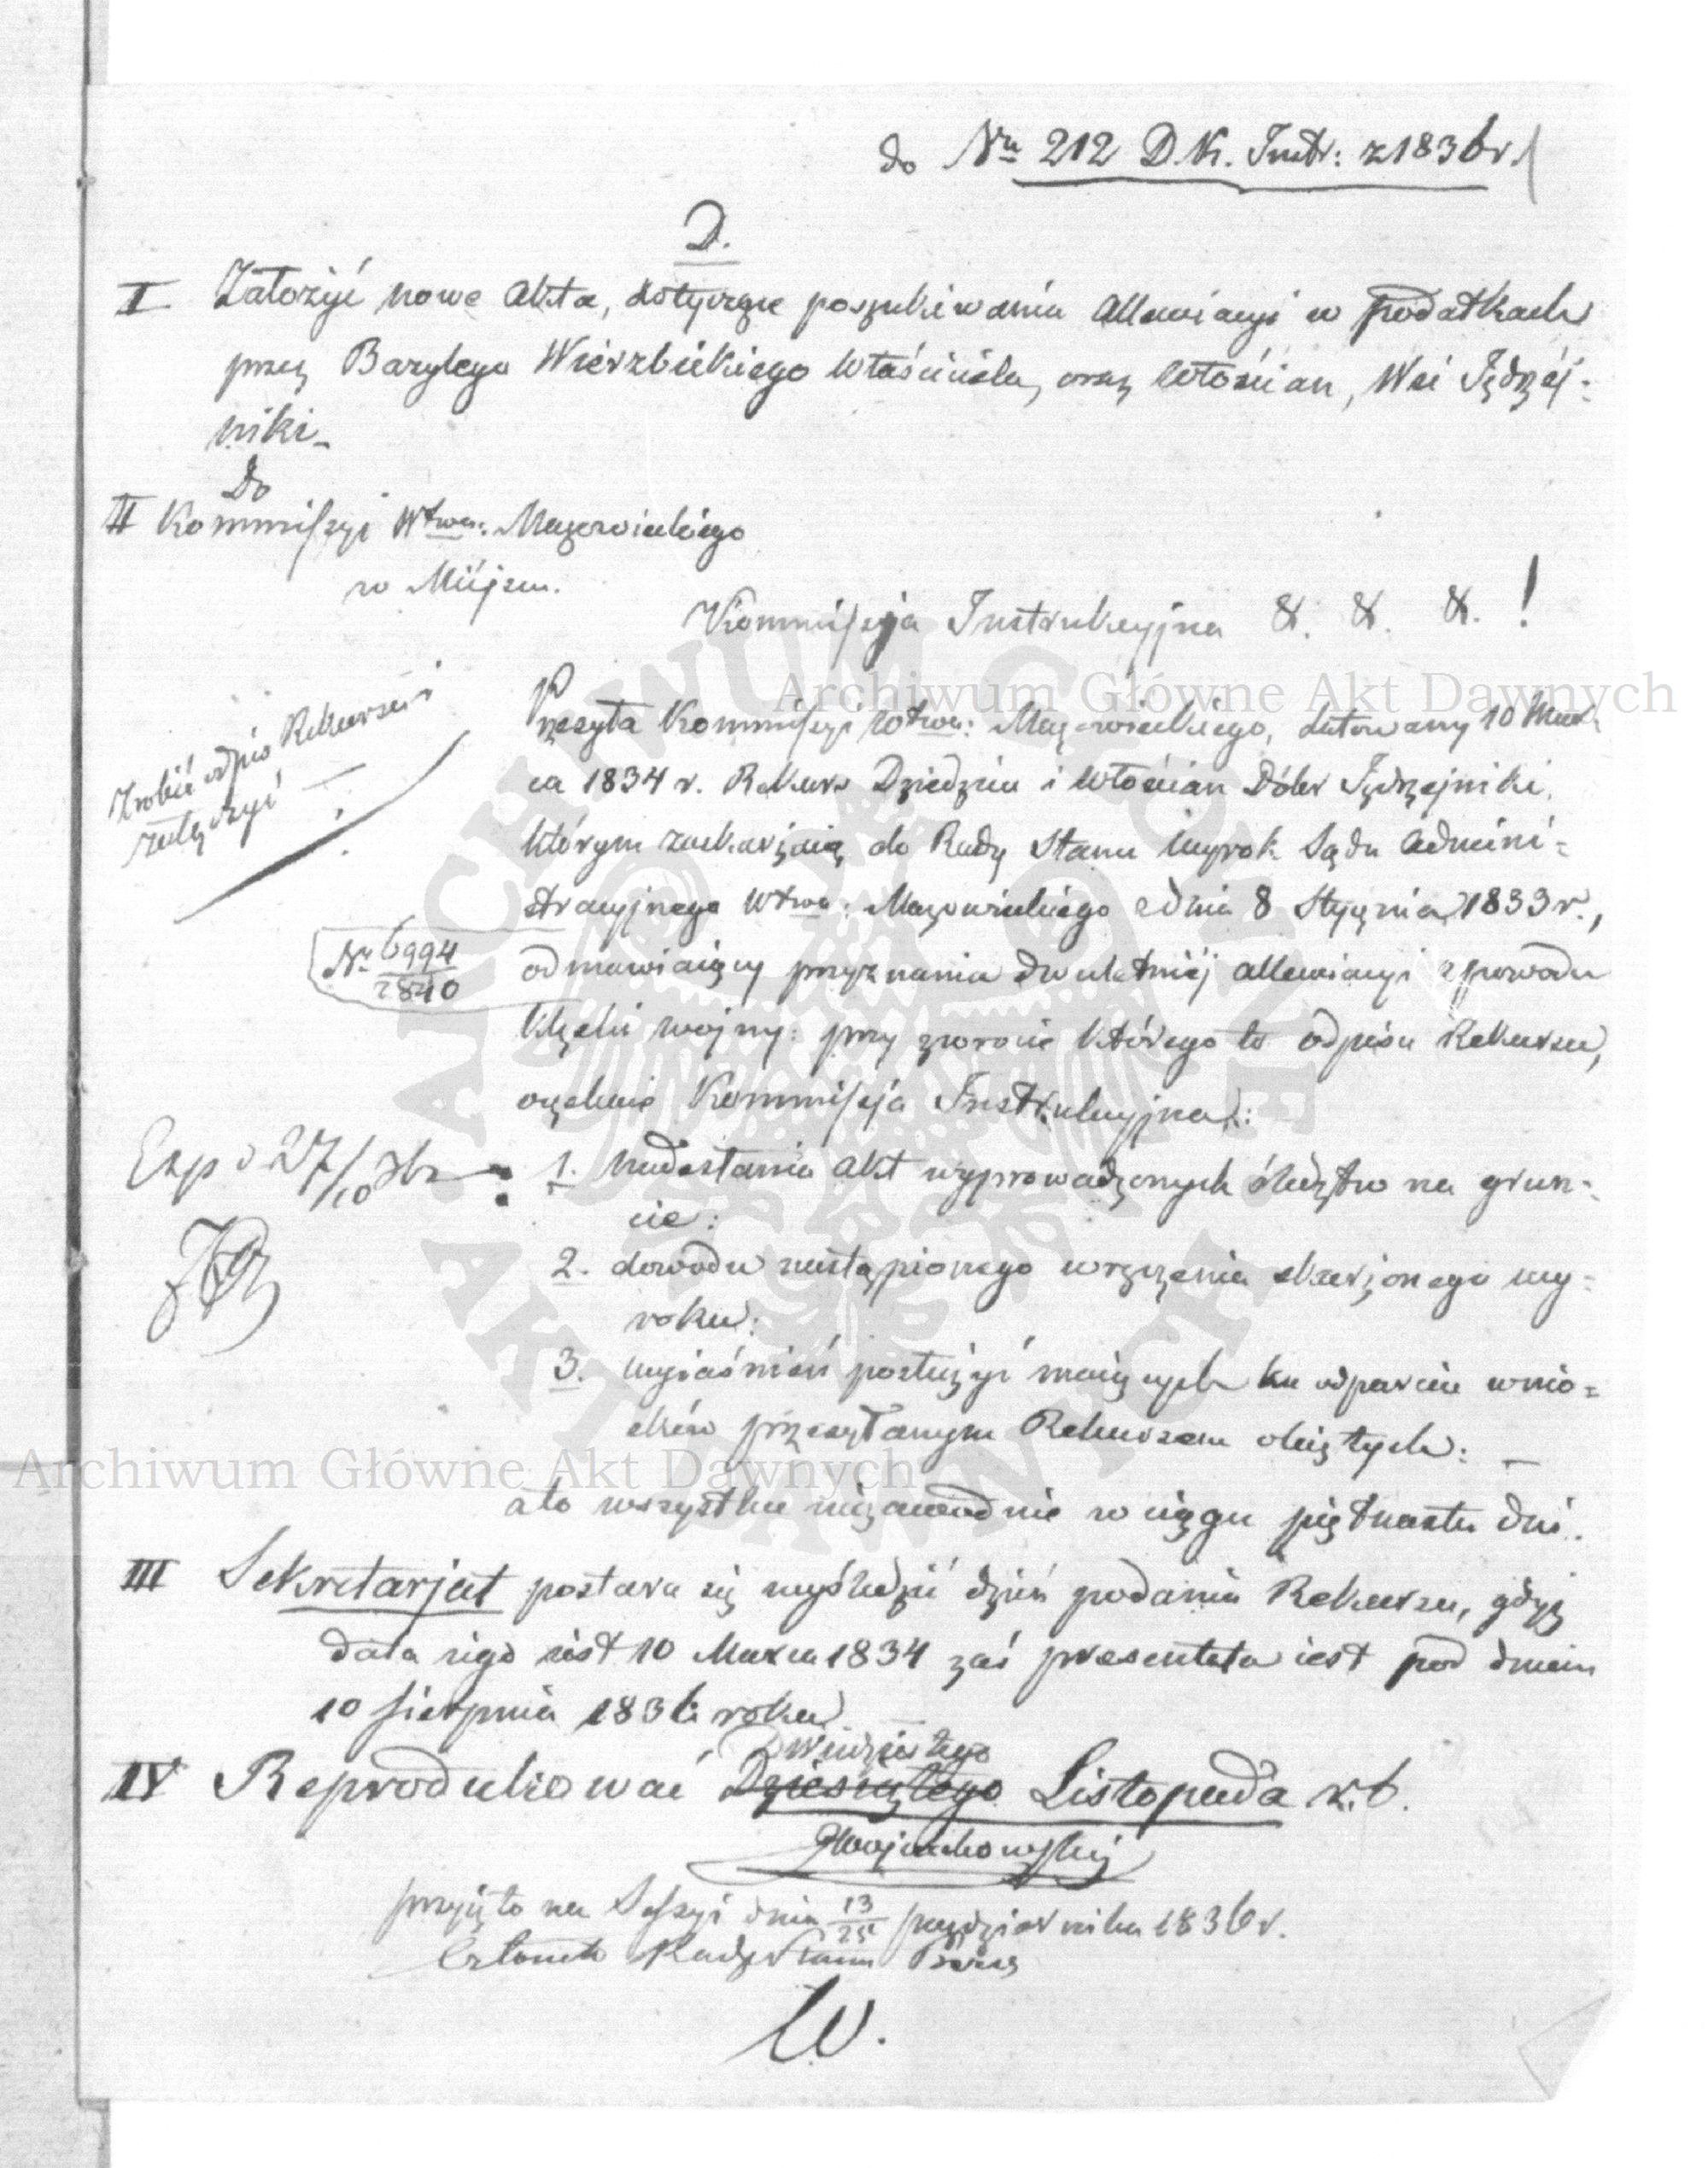 do Nru 212 D.K. Instr: z 1836 r.
D.
I Założyć nowe Akta, dotyczące poszukiwania Allewiacyi w podatkach
przez Bazylego Wierzbickiego właściciela, oraz włościan, Wsi Jędrzej-
niki
Do
II Kommissyi Wtwa: Mazowieckiego
w Miejscu.
Kommissyja Instrukcyjna &. &. &. !
Archiwum Główne Akt Dawnych
Przesyła Kommissyi Wtwa: Mazowieckiego, datowany 10 Mar-
ca 1834 r. Rekurs Dziedzica i włościan Dóbr Jędrzejniki,
którym zaskarżaią do Rady Stanu wyrok Sądu Admini-
stracyjnego Wtwa: Mazowieckiego z dnia 8 Stycznia 1833 r.,
odmawiaiący przyznania dwuletniéj allewiacyi z powodu
klęski wojny: przy zwrocie którego to odpisu Rekursu,
oczekuie Kommissyja Instrukcyjna:
Zrobić odpis Rekursu i
załączyć
Nr 6994
2840
Exp d 27/10 8br
1. nadesłania Akt wyprowadzonych śledztw na grun-
cie:
2. dowodu nastąpionego wręczenia skarżonego wy-
roku:
3. wyiaśnień posłużyć maiących ku odparciu wnio-
sków przesyłanym Rekursem obiętych:
Archiwum Główne Akt Dawnych
a to wszystko niezawodnie w ciągu piętnastu dni.
III Sekretarjat postara się wyśledzić dzień podania Rekursu, gdyż
data iego iest 10 Marca 1834 zaś presentata iest pod dniem
10 Sierpnia 1836 roku
Dwudziestego
IV Reprodukować Dziesiątego Listopada r.b.
Wojciechowski
przyięto na Sessyi dnia 13/25 października 1836 r.
Członek Rady Stanu Prezes
W.
ARCHIWUM GŁÓWNE AKT DAWNYCH